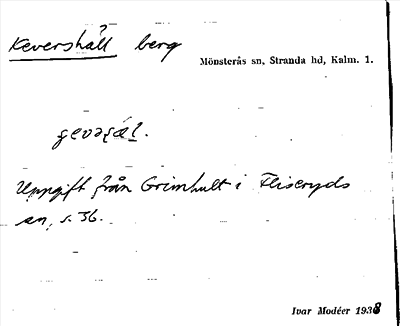 Kevershäll berg
Mönsterås sn, Stranda hd, Kalm. l.
Uppgift från Grimhult i Fliseryds
sn, s. 36.
Ivar Modéer 1938